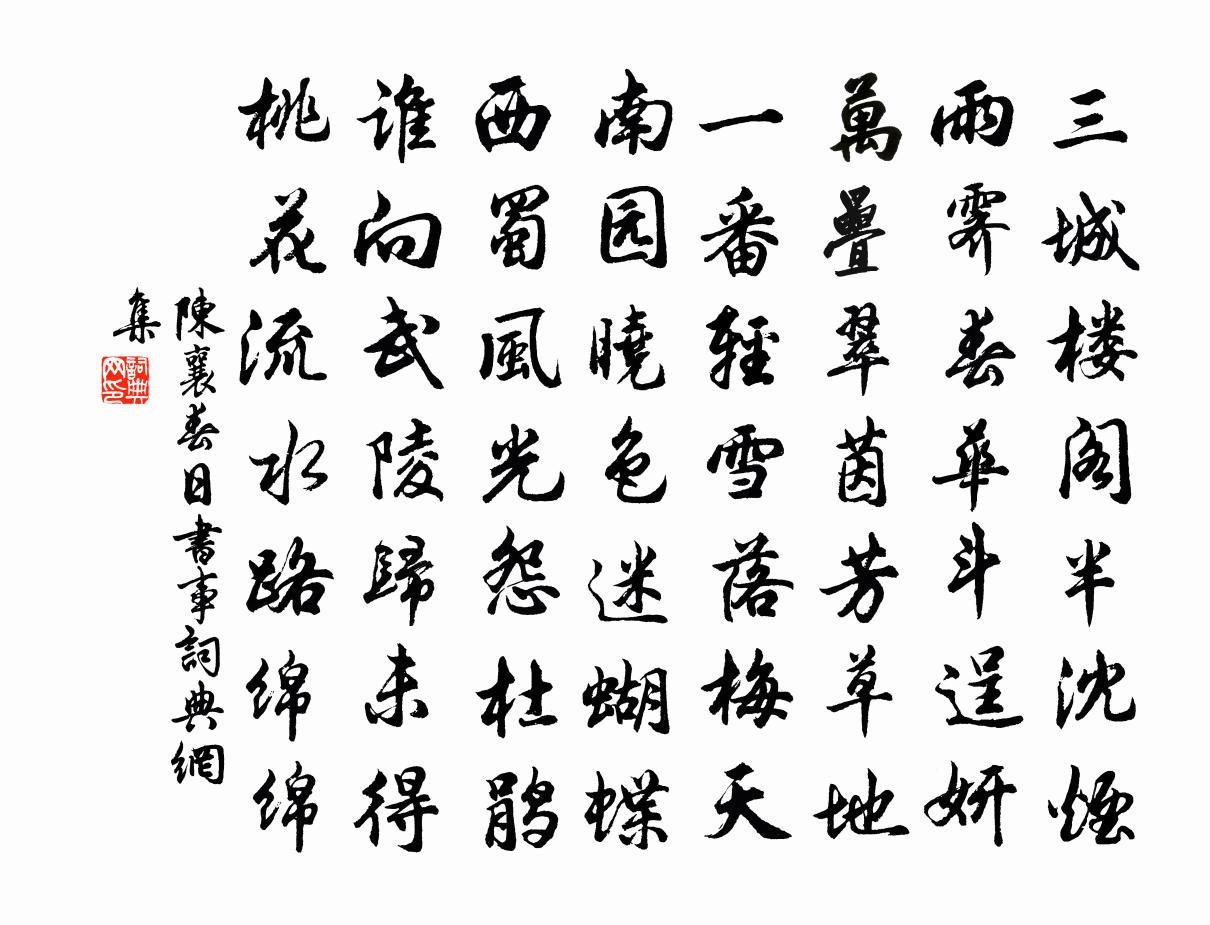 三城楼阁半沈煙
雨霽春華斗逞妍
萬疊翠茵芳草地
一番輕雪落梅天
南园曉色迷蝴蝶
西蜀風光怨杜鹃
谁向武陵歸未得
桃花流水路绵绵
陳襄春日書事詞典網
集
詞典
网印